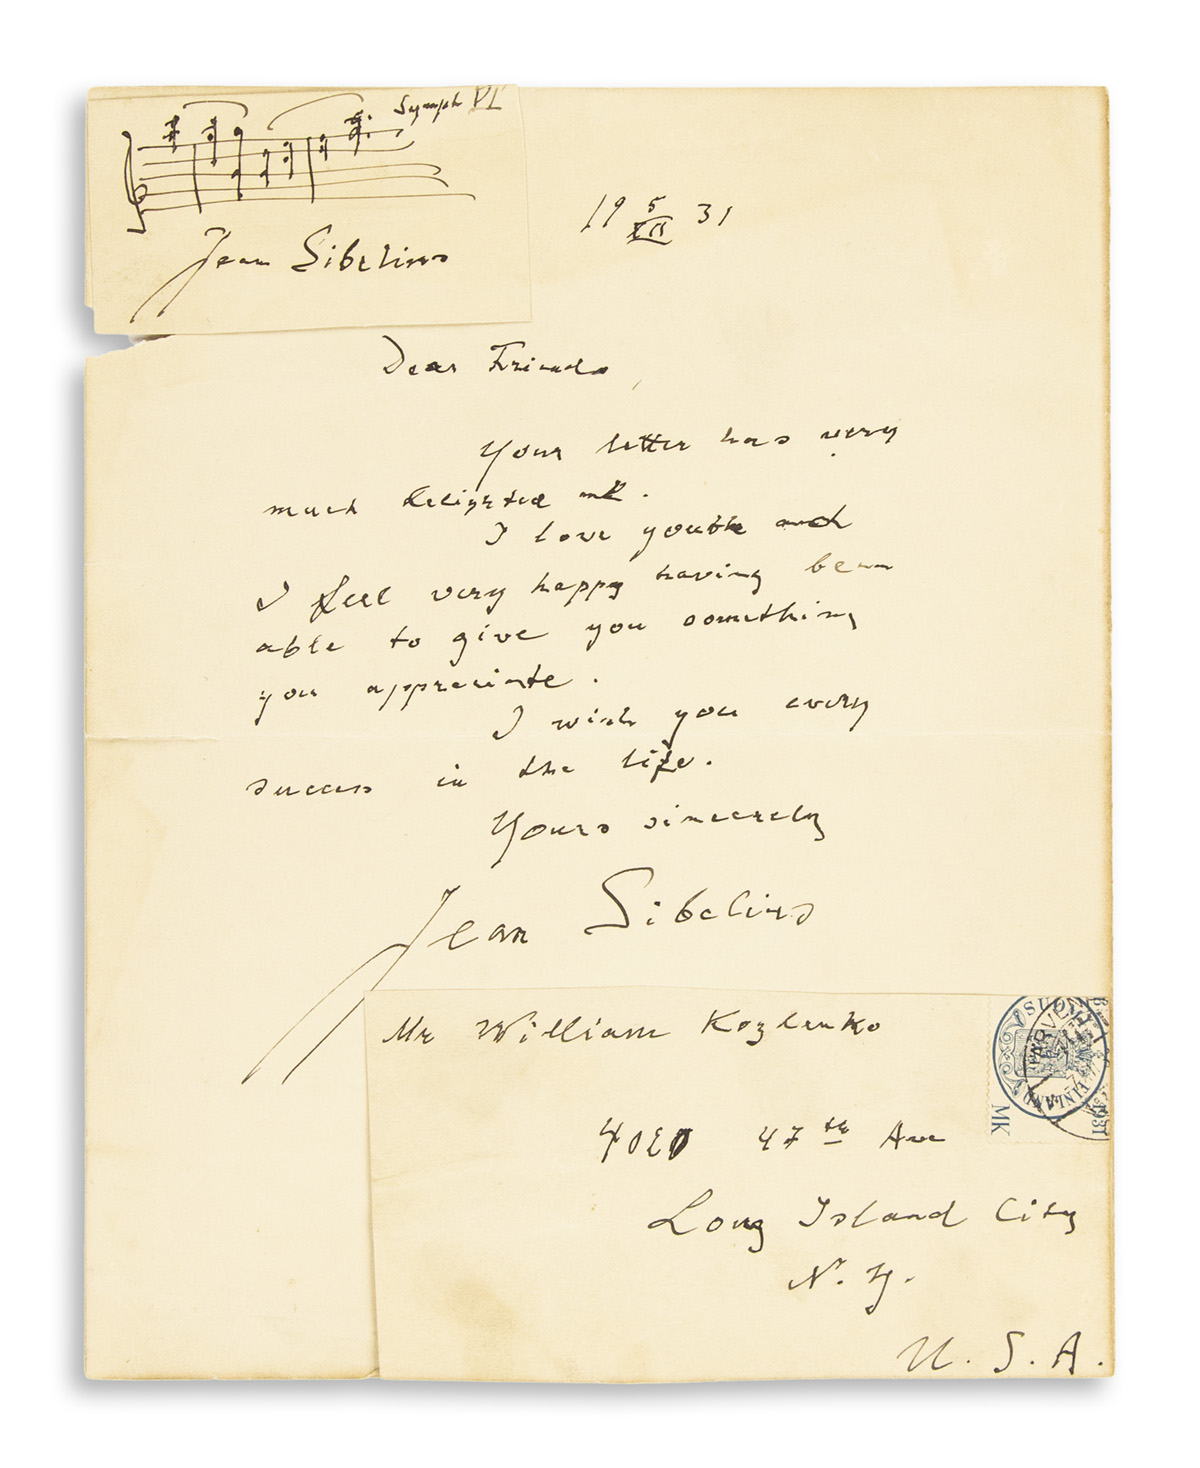 Symph VI
Jean Sibelius
19 5/XII 31
Dear Friends,
Your letter has very
much delighted me.
I love youth and
I feel very happy having been
able to give you something
you appreciate.
I wish you every
success in the life.
Yours sincerely
Jean Sibelius
Mr William Kozlenko
SUOMI
FINLAND
MK
1931
47th Ave
Long Island City
N. Y.
U. S. A.